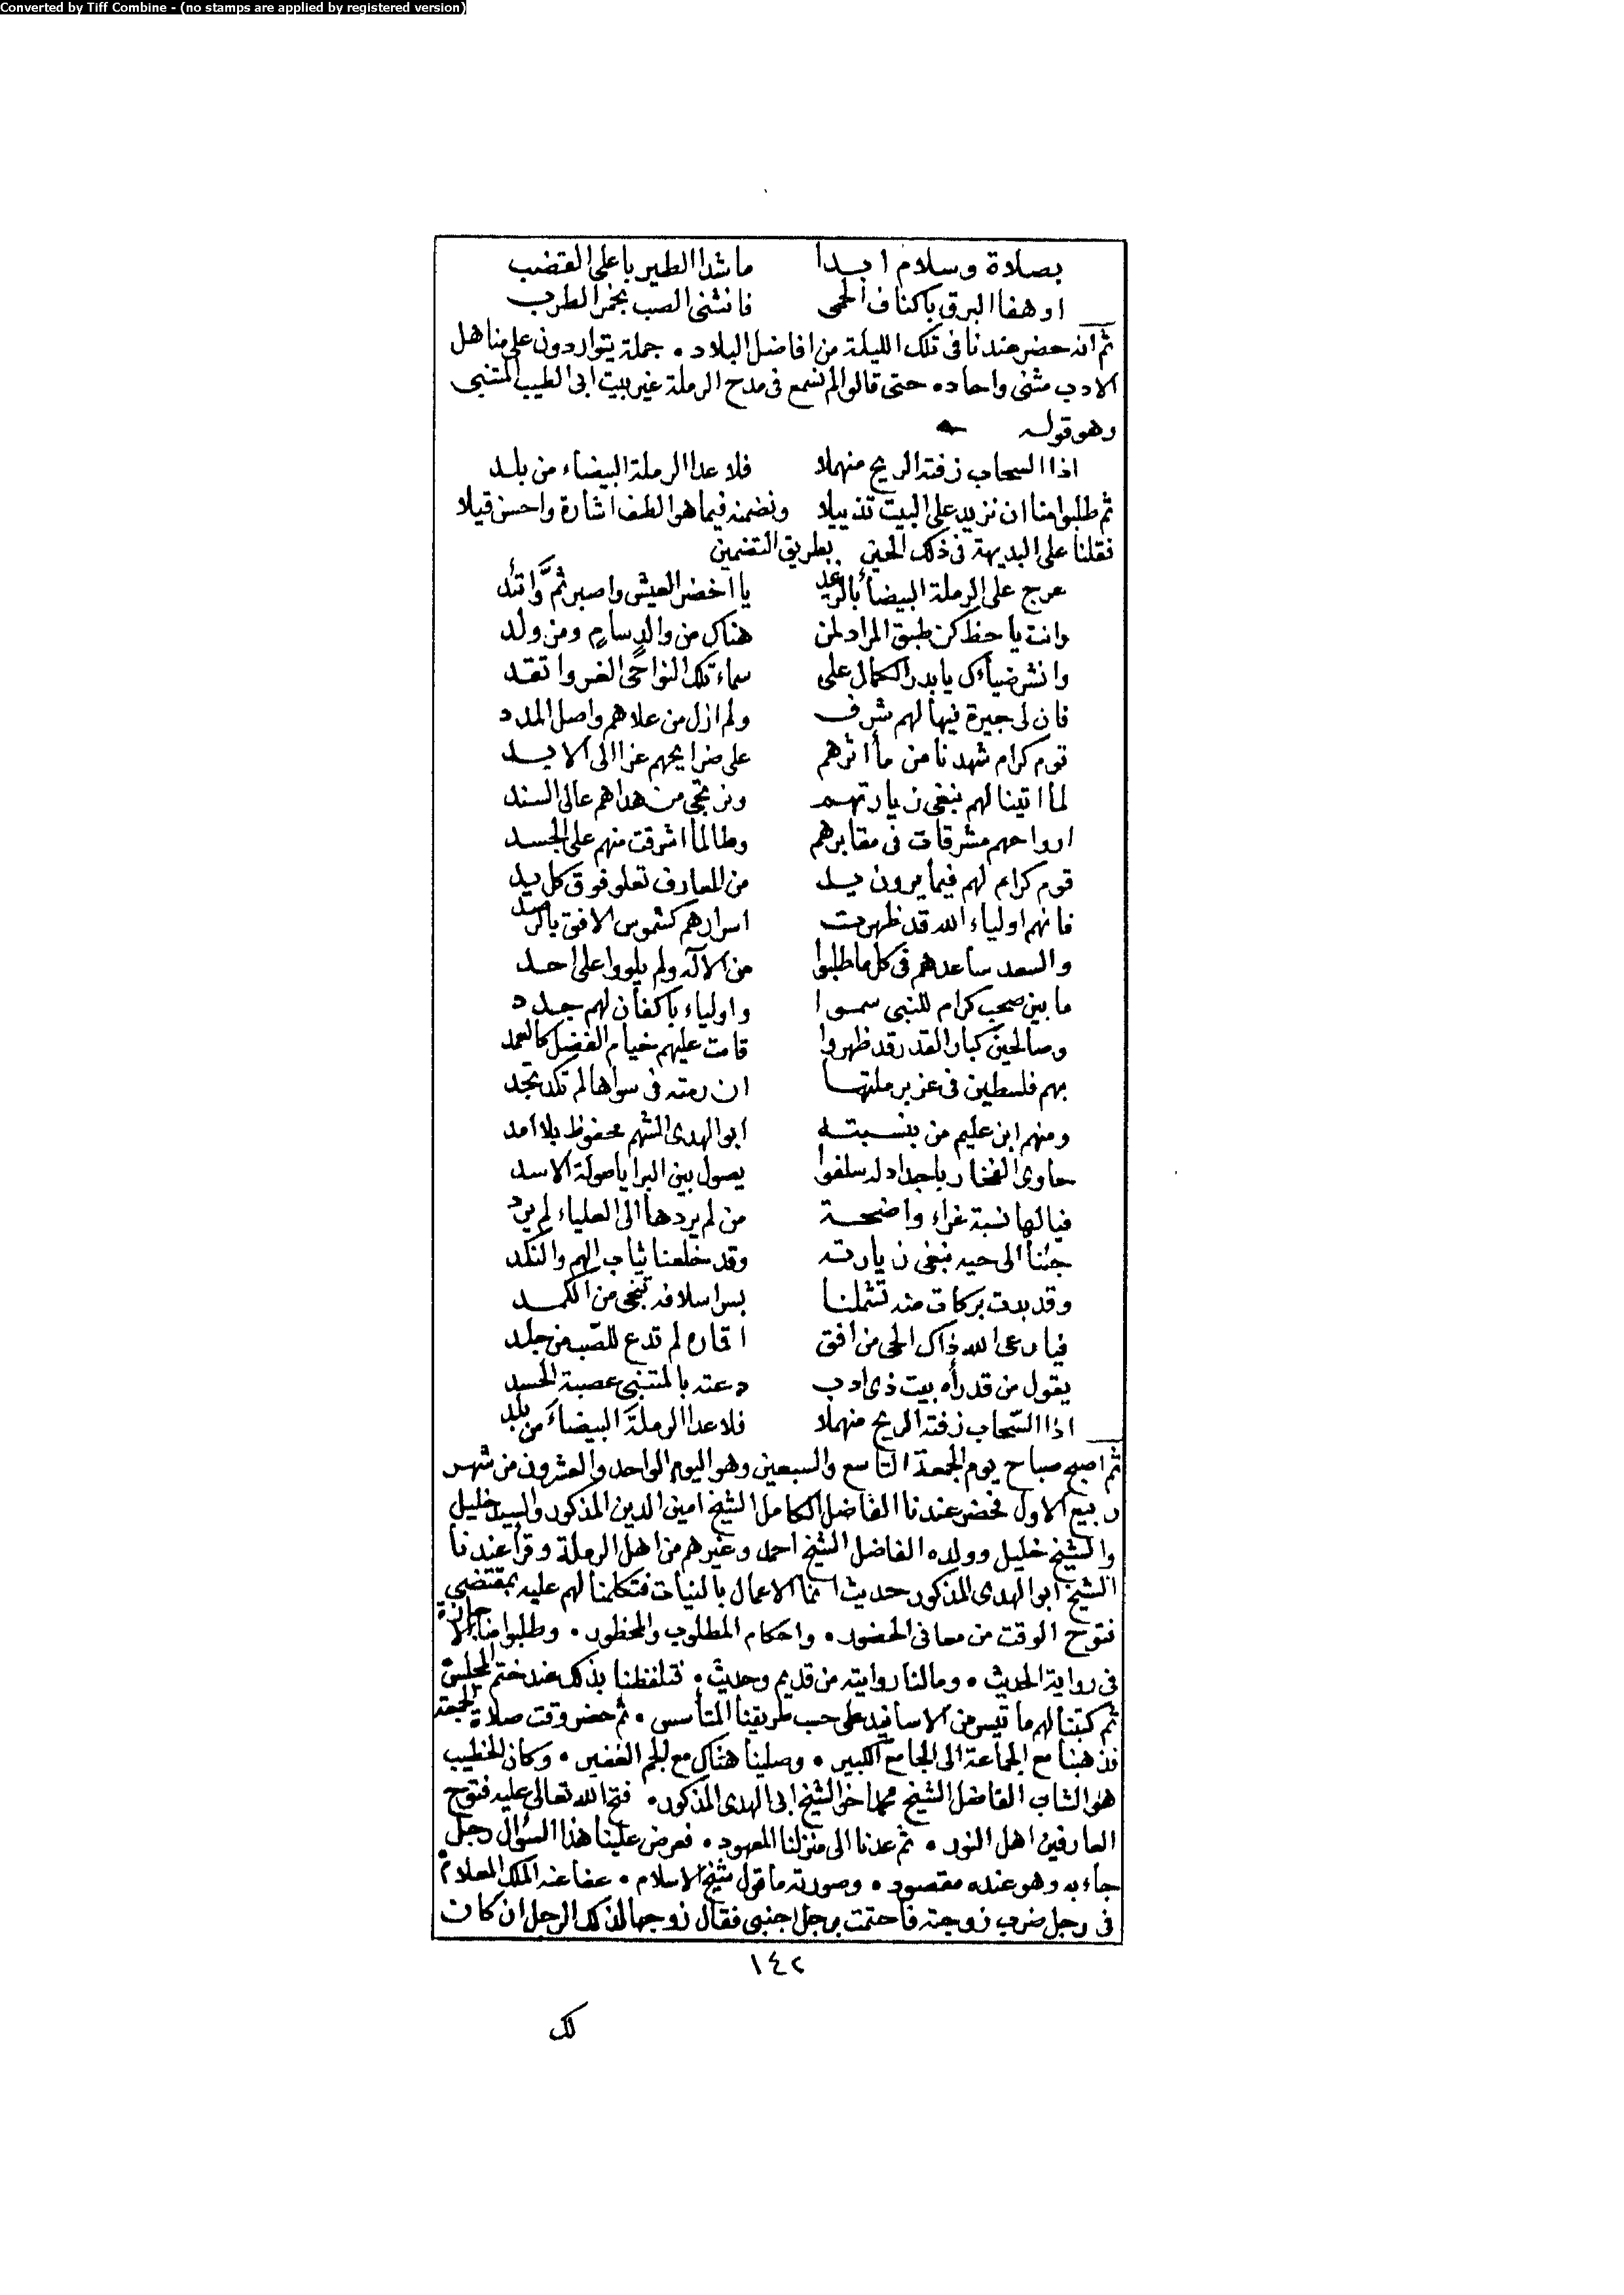 Converted by Tiff Combine - (no stamps are applied by registered version)
بصلاة وسلام ابدا ما شدا الطير باعلى القضب
او هفا البرق باكناف الحمى فانثنى الصب بخمر الطرب
ثم انه حضر عندنا فى تلك الليلة من افاضل البلاد . جملة يتواردون على مناهل
الادب مثنى واحاده حتى قالوا لم نسمع فى مدح الرملة غير بيت ابى الطيب المتنبى
وهو قوله
اذا السحاب زفته الريح منهملا فلا عدا الرملة البيضاء من بلد
ثم طلبوا منا ان نزيد على البيت تذييلا ونضمنه فيما هو الطف اشارة واحسن قيلا
فقلنا على البديهة فى ذلك الحين بطريق التضمين
عرج على الرملة البيضاء بالرغد يا اخضر العيش واصبر ثمَّ واتئد
وانت يا حظ كن طبق المراد لمن هناك من والدٍ سامٍ ومن ولد
وانشر ضياءك يا بدر الكمال على سماء تلك النواحى الغر واتقد
فان لى جيرة فيها لهم شرف ولم ازل من علاهم واصل المدد
قوم كرام شهدنا من مآثرهم على ضرايحهم عزا الى الابد
لما اتينا لهم نبغى زيارتهم ونرتجى من هداهم عالى السند
ارواحهم مشرقات فى مقابرهم وطالما اشرقت منهم على الجسد
قوم كرام لهم فيما يرون يد من المعارف تعلو فوق كل يد
فانهم اولياء الله قد ظهرت اسرارهم كشموس الافق بالرصد
والسعد ساعدهم فى كل ما طلبوا من الاله ولم يلووا على احد
ما بين صحب كرام للنبى سموا واولياء باكفان لهم جدد
وصالحين كبار القدر قد ظهروا قامت عليهم خيام الفضل كالعمد
بهم فلسطين فى عز برملتها ان رمته فى سواها لم تكد تجد
ومنهم ابن عليم من بنسبته ابو الهدى الشهم محفوظ بلا امد
حاوى الفخار باجداد له سلفوا يصول بين البرايا صولة الاسد
فيالها نسبة غراء واضحة من لم يردها الى العلياء لم يرد
جئنا الى حيه نبغى زيارته وقد خلعنا ثياب الهم والنكد
وقد بدت بركات منه تشملنا بسر اسلافه تنجى من الكمد
فيا رعى الله ذاك الحى من افق اقماره لم تدع للصّب من جلد
يقول من قد رأه بيت ذى ادب دعته بالمتنبى عصبة الحسد
اذا السّحاب زفته الريح منهملا فلا عدا الرملة البيضاءَ من بلد
ثم اصبح صباح يوم الجمعة التاسع والسبعين وهو اليوم الواحد والعشرون من شهر
ربيع الاول فحضر عندنا الفاضل الكامل الشيخ امين الدين المذكور والسيد خليل
والشيخ خليل وولده الفاضل الشيخ احمد وغيرهم من اهل الرملة وقرأ عندنا
الشيخ ابو الهدى المذكور حديث انما الاعمال بالنيات فتكلمنا لهم عليه بمقتضى
فتوح الوقت من معانى الحضور . واحكام المطلوب والمحظور . وطلبوا منا الاجازة
فى رواية الحديث . وما لنا روايته من قديم وحديث . فتلفظنا بذلك عند ختم المجلس
ثم كتبنا لهم ما تيسر من الاسانيد على حب طريقنا المتأسس . ثم حضر وقت صلاة الجمعة
فذهبنا مع الجماعة الى الجامع الكبير . وصلينا هناك مع الجم الغفير . وكان الخطيب
هو الشاب الفاضل الشيخ محمد اخو الشيخ ابى الهدى المذكور . فتح الله تعالى عليه فتوح
العارفين اهل النور . ثم عدنا الى منزلنا المعهود . فعرض علينا هذا السؤال رجل
جاء به وهو عنده مقصود . وصورته ما قول شيخ الاسلام . عفا عنه الملك العلام
فى رجل ضرب زوجته فاحتمت برجل اجنبى فقال زوجها لذلك الرجل ان كان
١٤٢
لك